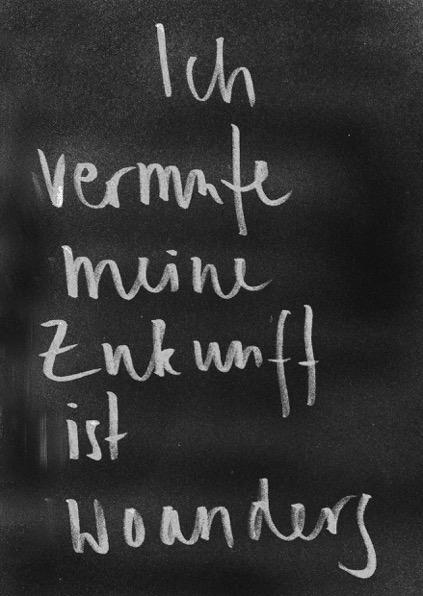 Ich
vermute
meine
Zukunft
ist
woanders